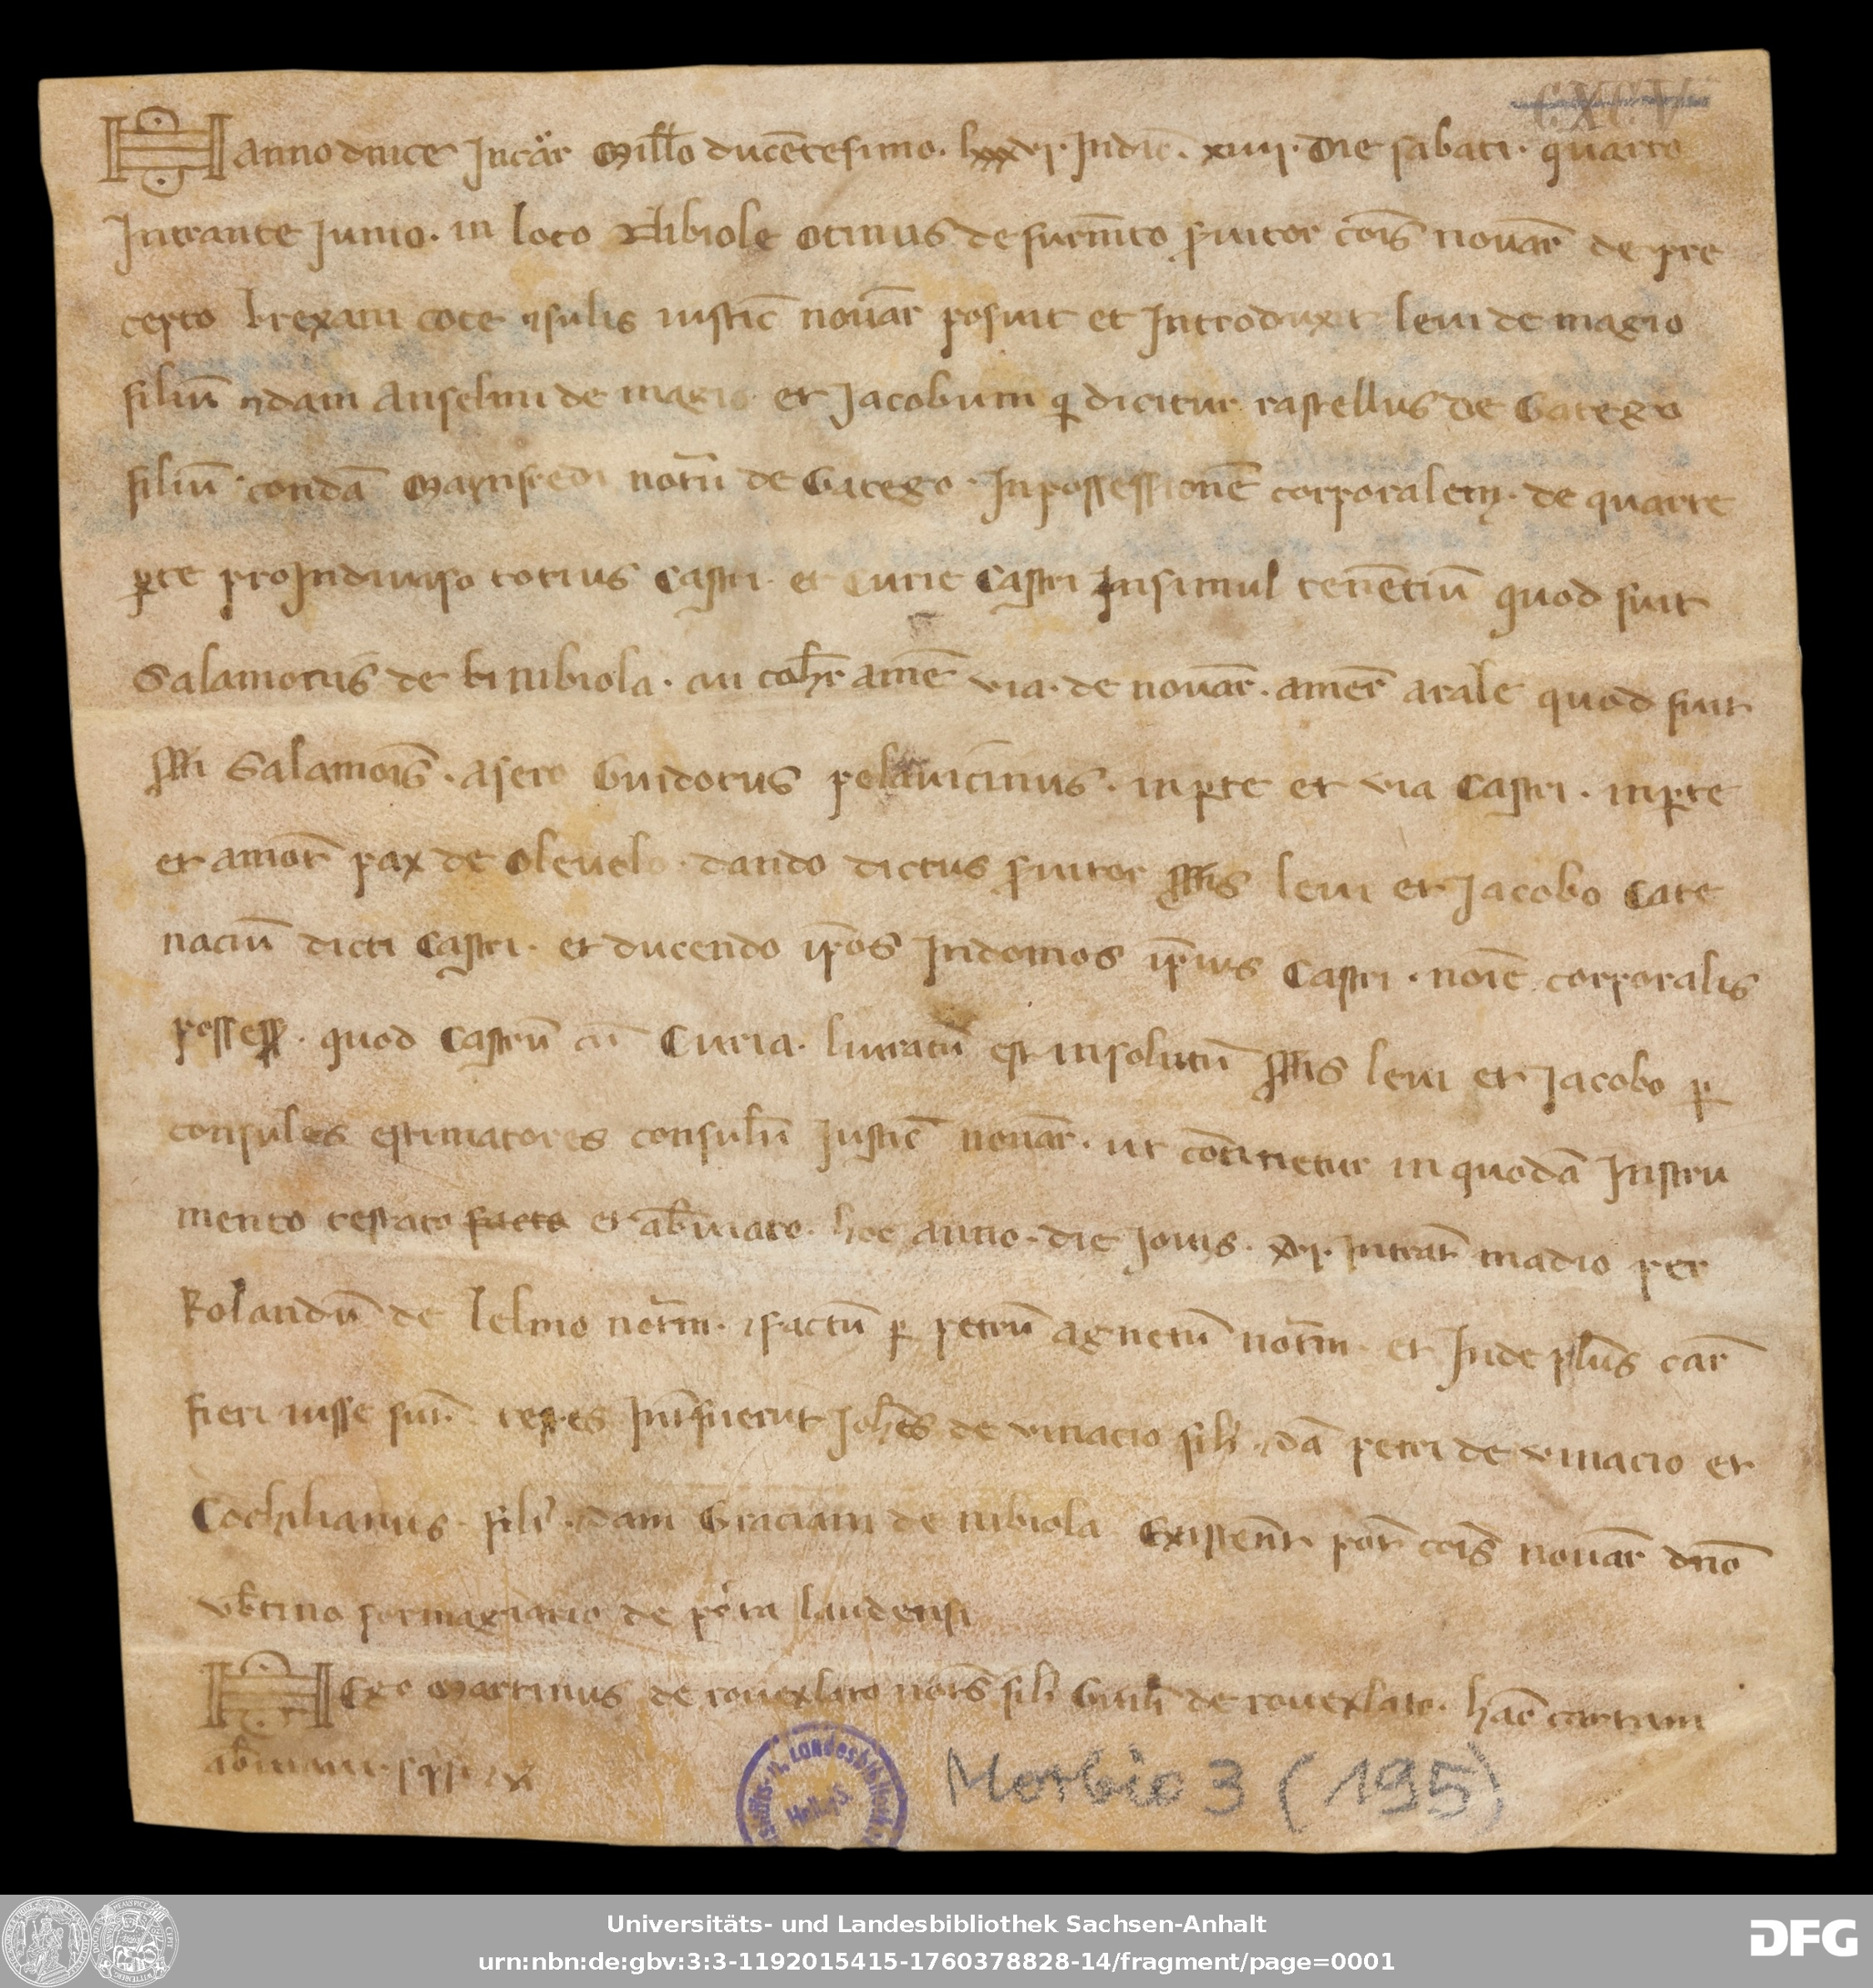 CXCV
anno dnice Incar Millo ducētesimo. lxxxvi. Indic. xiiii. Die sabati. quarto
Intrante Junio. in loco Nibiole Otinus de furnito suitor cōis nouar de pre
cepto brexani cote ɔsulis iustic nouar posuit et Introduxit leui de magio
filiū ɔdam Anselmi de magio et Jacobum qi dicitur rastellus de Gatego
filiū condā Maynfredi notrii de Gatego. In possessionē corporalem. de quarte
pte pro Indiuiso totius Castri. et Curie Castri Insimul tenētiū quod fuit
Salamonis de binibiola. cui coher amē via. de nouar. amer arale quod fuit
sssti Salamōis. asero Guidotus pelauicinus. in pte et via Castri. in pte
et amōr pax de Oleuelo. dando dictus suitor ssstis leui et Jacobo Cate
naciū dicti Castri. et ducendo ip̄os In domos ip̄ius Castri. noīe corporalis
possess. quod Castrū cū Curia. liuratū est insolutū ssstis leui et Jacobo p
consules estimatores consulū Justic nouar. ut cōtinetur in quodā Instru
mento testato facto et abiuiato. hoc anno. die Jouis. xvi. Intrār madio per
Rolandū de lelmo notm. ɔfactū p petrū agnetū notm. et Inde plus car
fieri iusse sur. testes Intfuerūt Johes de vinacio fili ɔdā petri de vinacio et
Cochilianus. fili ɔdam Graciani de nibiola Existent pot cois nouar dno
vbtino formagiario de porta laudensi
Ego Martinus de rouexlato notus fili Guili de rouexlato. hāc cartam
abiuiaui. scpsi
Morbio 3 (195)
Universitäts- und Landesbibliothek Sachsen-Anhalt
urn:nbn:de:gbv:3:3-1192015415-1760378828-14/fragment/page=0001
DFG